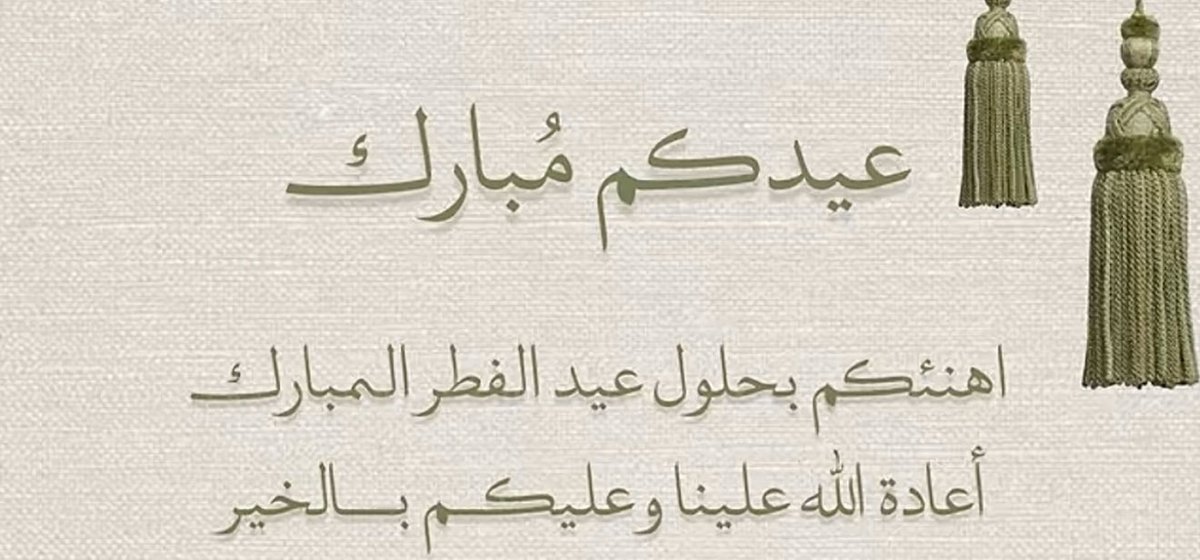 عيدكم مُبارك
اهنئكم بحلول عيد الفطر المبارك
أعادة الله علينا وعليكم بالخير